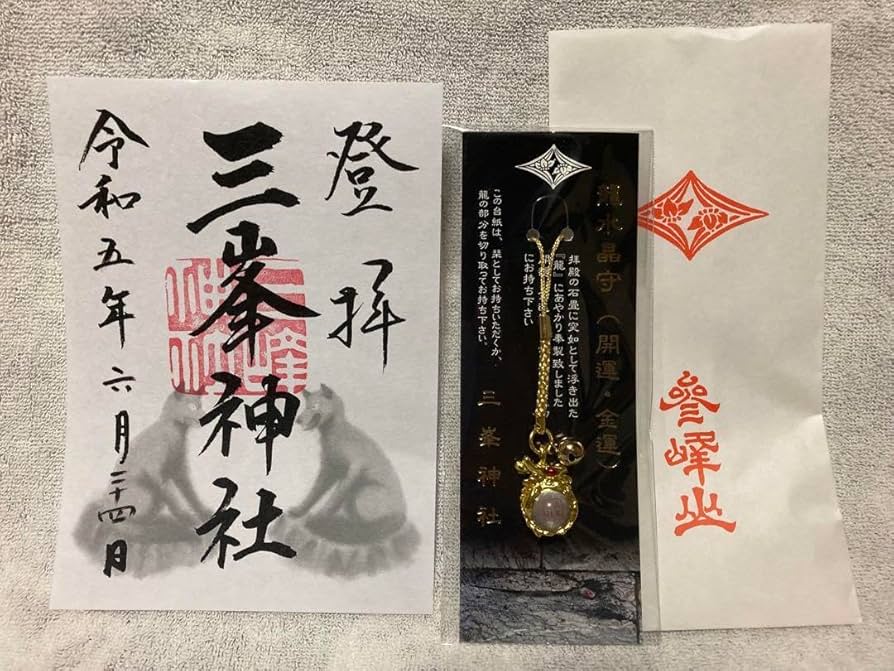 登拝
三峯神社
令和五年六月二十四日
龍水晶守(開運・金運)
拝殿の石畳に突如として浮き出た
『龍』にあやかり奉製致しました
にお持ち下さい
この台紙は、栞としてお持ちいただくか、
龍の部分を切り取ってお持ち下さい。
三峯神社
參峰山